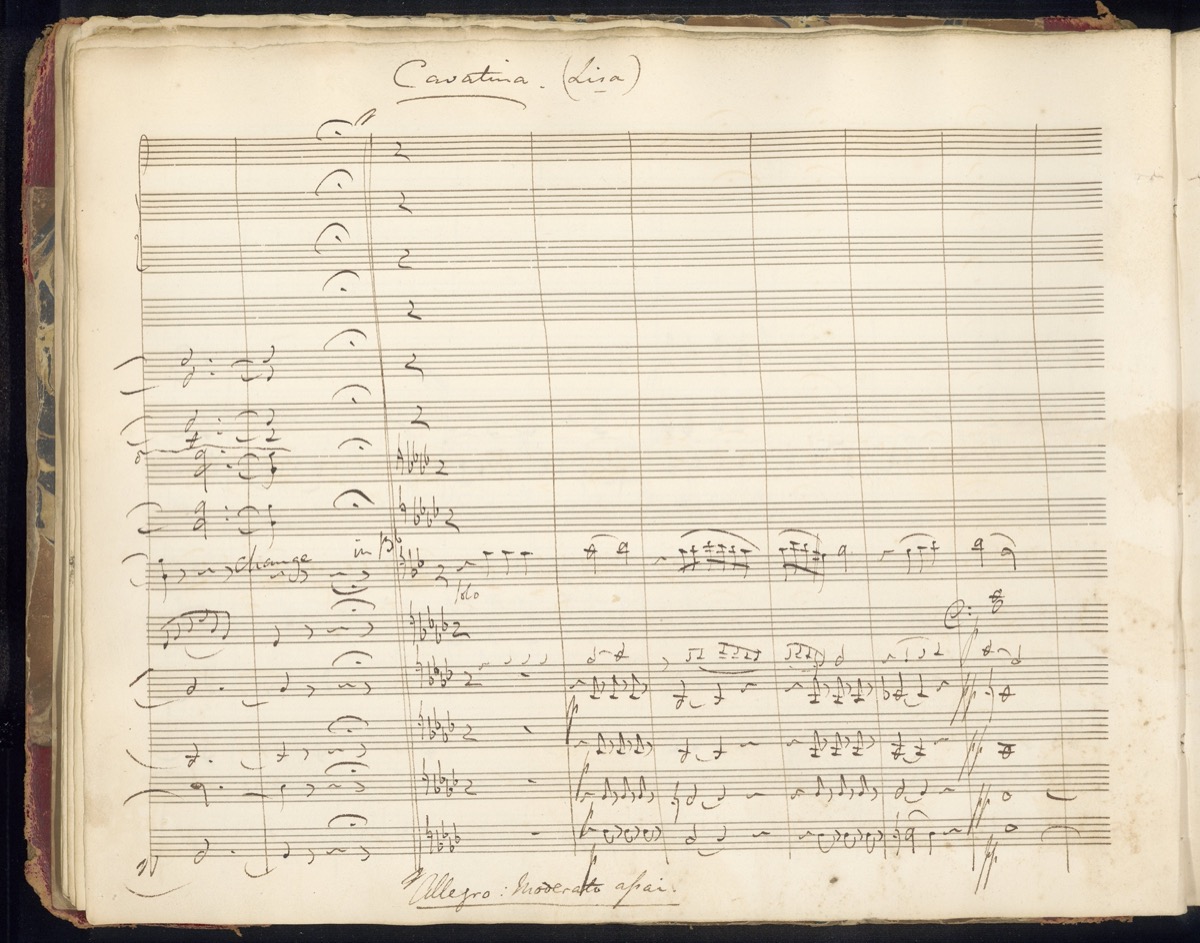 Cavatina. (Lisa)
change in B♭
Solo
Allegro: Moderato assai.